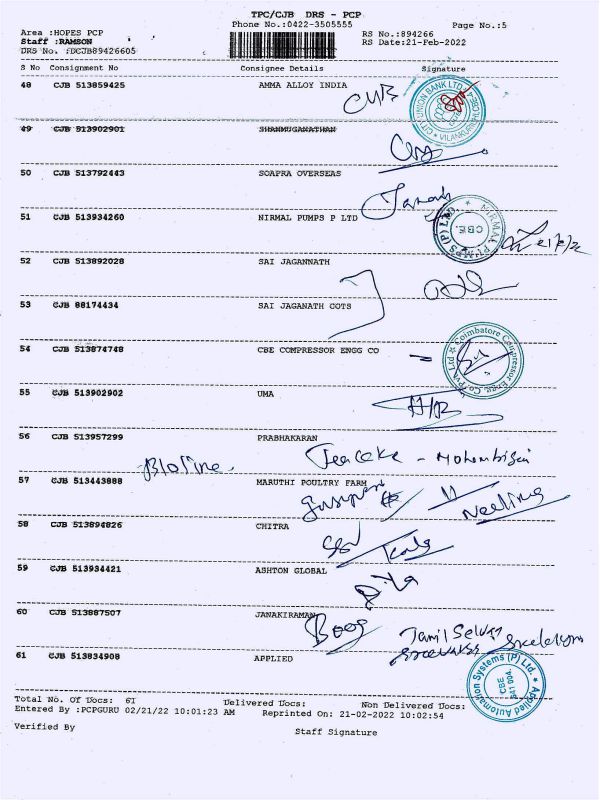 TPC/CJB DRS - PCP
Phone No.:0422-3505555
Page No.:5
Area :HOPES PCP
RS No.:894266
Staff :RAMSON
RS Date:21-Feb-2022
DRS No. :DCJB89426605
S No Consignment No Consignee Details Signature
48 CJB 513859425 AMMA ALLOY INDIA
CUB
CITY UNION BANK LTD
49 CJB 513902901 SHANMUGANATHAN
50 CJB 513792443 SOAPRA OVERSEAS
51 CJB 513934260 NIRMAL PUMPS P LTD
NIRMAL PUMPS (P) LTD.
CBE.
52 CJB 513892028 SAI JAGANNATH
53 CJB 88174434 SAI JAGANATH COTS
54 CJB 513874748 CBE COMPRESSOR ENGG CO
Coimbatore Compressor Engg. Co. Pvt. Ltd
55 CJB 513902902 UMA
56 CJB 513957299 PRABHAKARAN
57 CJB 513443888 MARUTHI POULTRY FARM
58 CJB 513894826 CHITRA
59 CJB 513934421 ASHTON GLOBAL
60 CJB 513887507 JANAKIRAMAN
Tamil Selvan
61 CJB 513834908 APPLIED
Applied Automation Systems (P) Ltd.
CBE
641 004
Total No. Of Docs: 61 Delivered Docs: Non Delivered Docs:
Entered By :PCPGURU 02/21/22 10:01:23 AM Reprinted On: 21-02-2022 10:02:54
Verified By Staff Signature